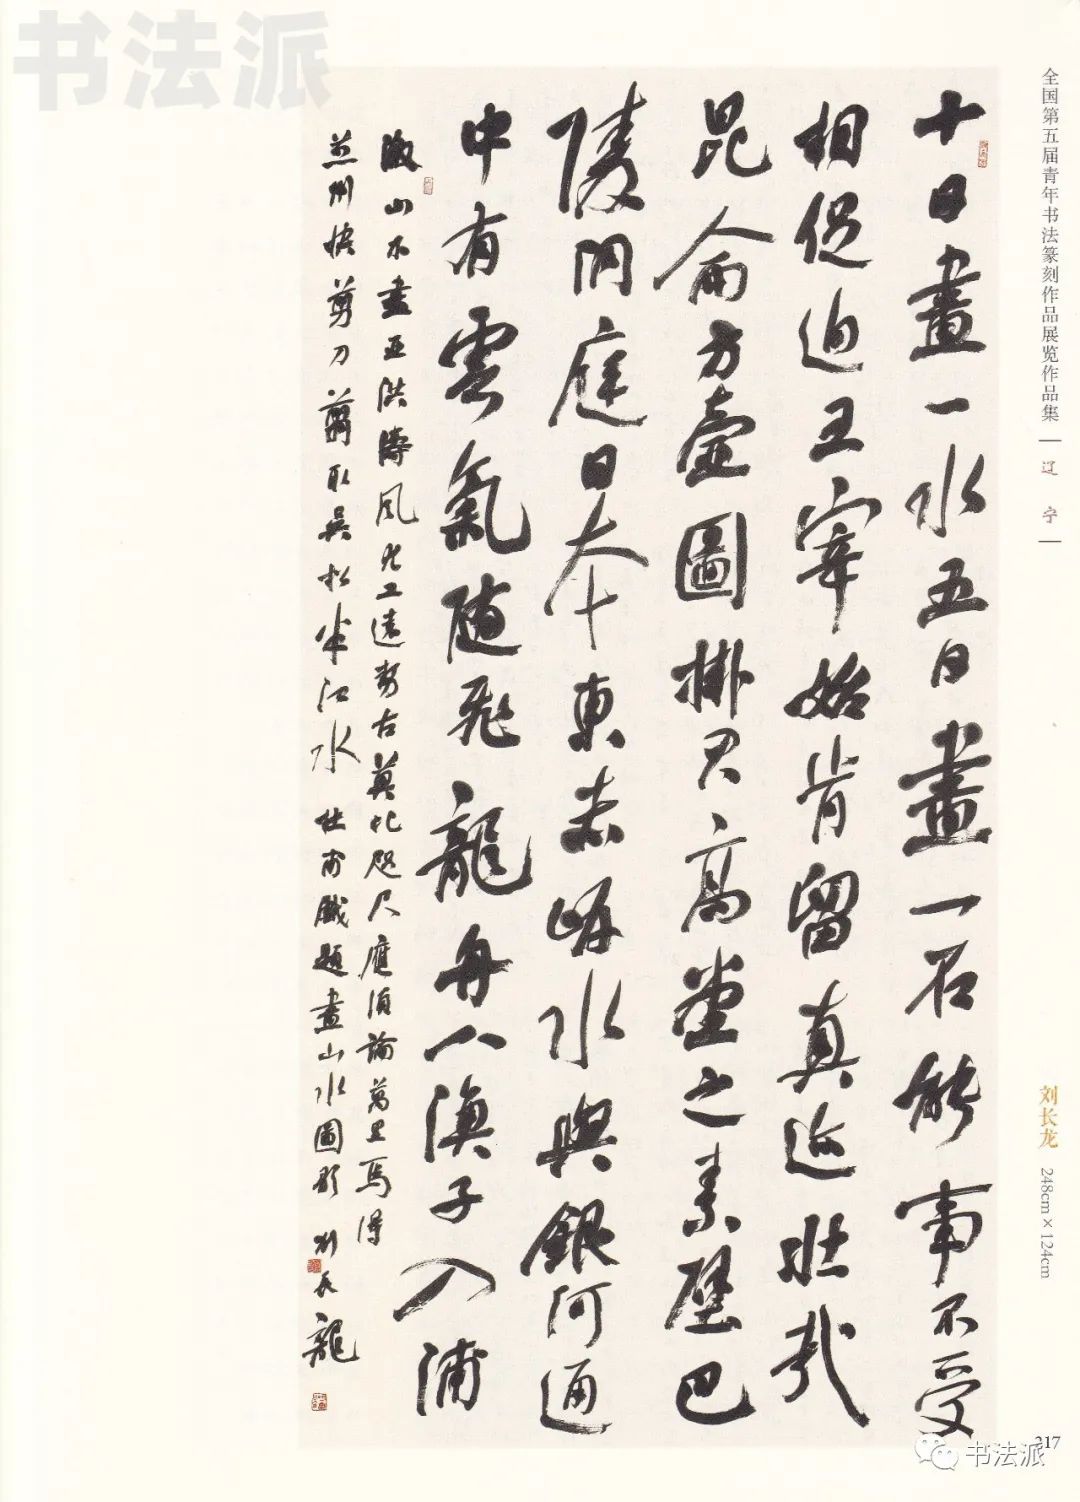 书法派
全国第五届青年书法篆刻作品展览作品集 | 辽 宁 |
刘长龙 248cm×124cm
十日畫一水五日畫一石能事不受
相促迫王宰始肯留真迹壯哉
昆侖方壺圖掛君高堂之素壁巴
陵洞庭日本東赤岸水與銀河通
中有雲氣隨飛龍舟人漁子入浦
溆山木盡亞洪濤風尤工遠勢古莫比咫尺應須論萬里焉得
并州快剪刀翦取吳松半江水 杜甫戲題畫山水圖歌 劉長龍
217
书法派